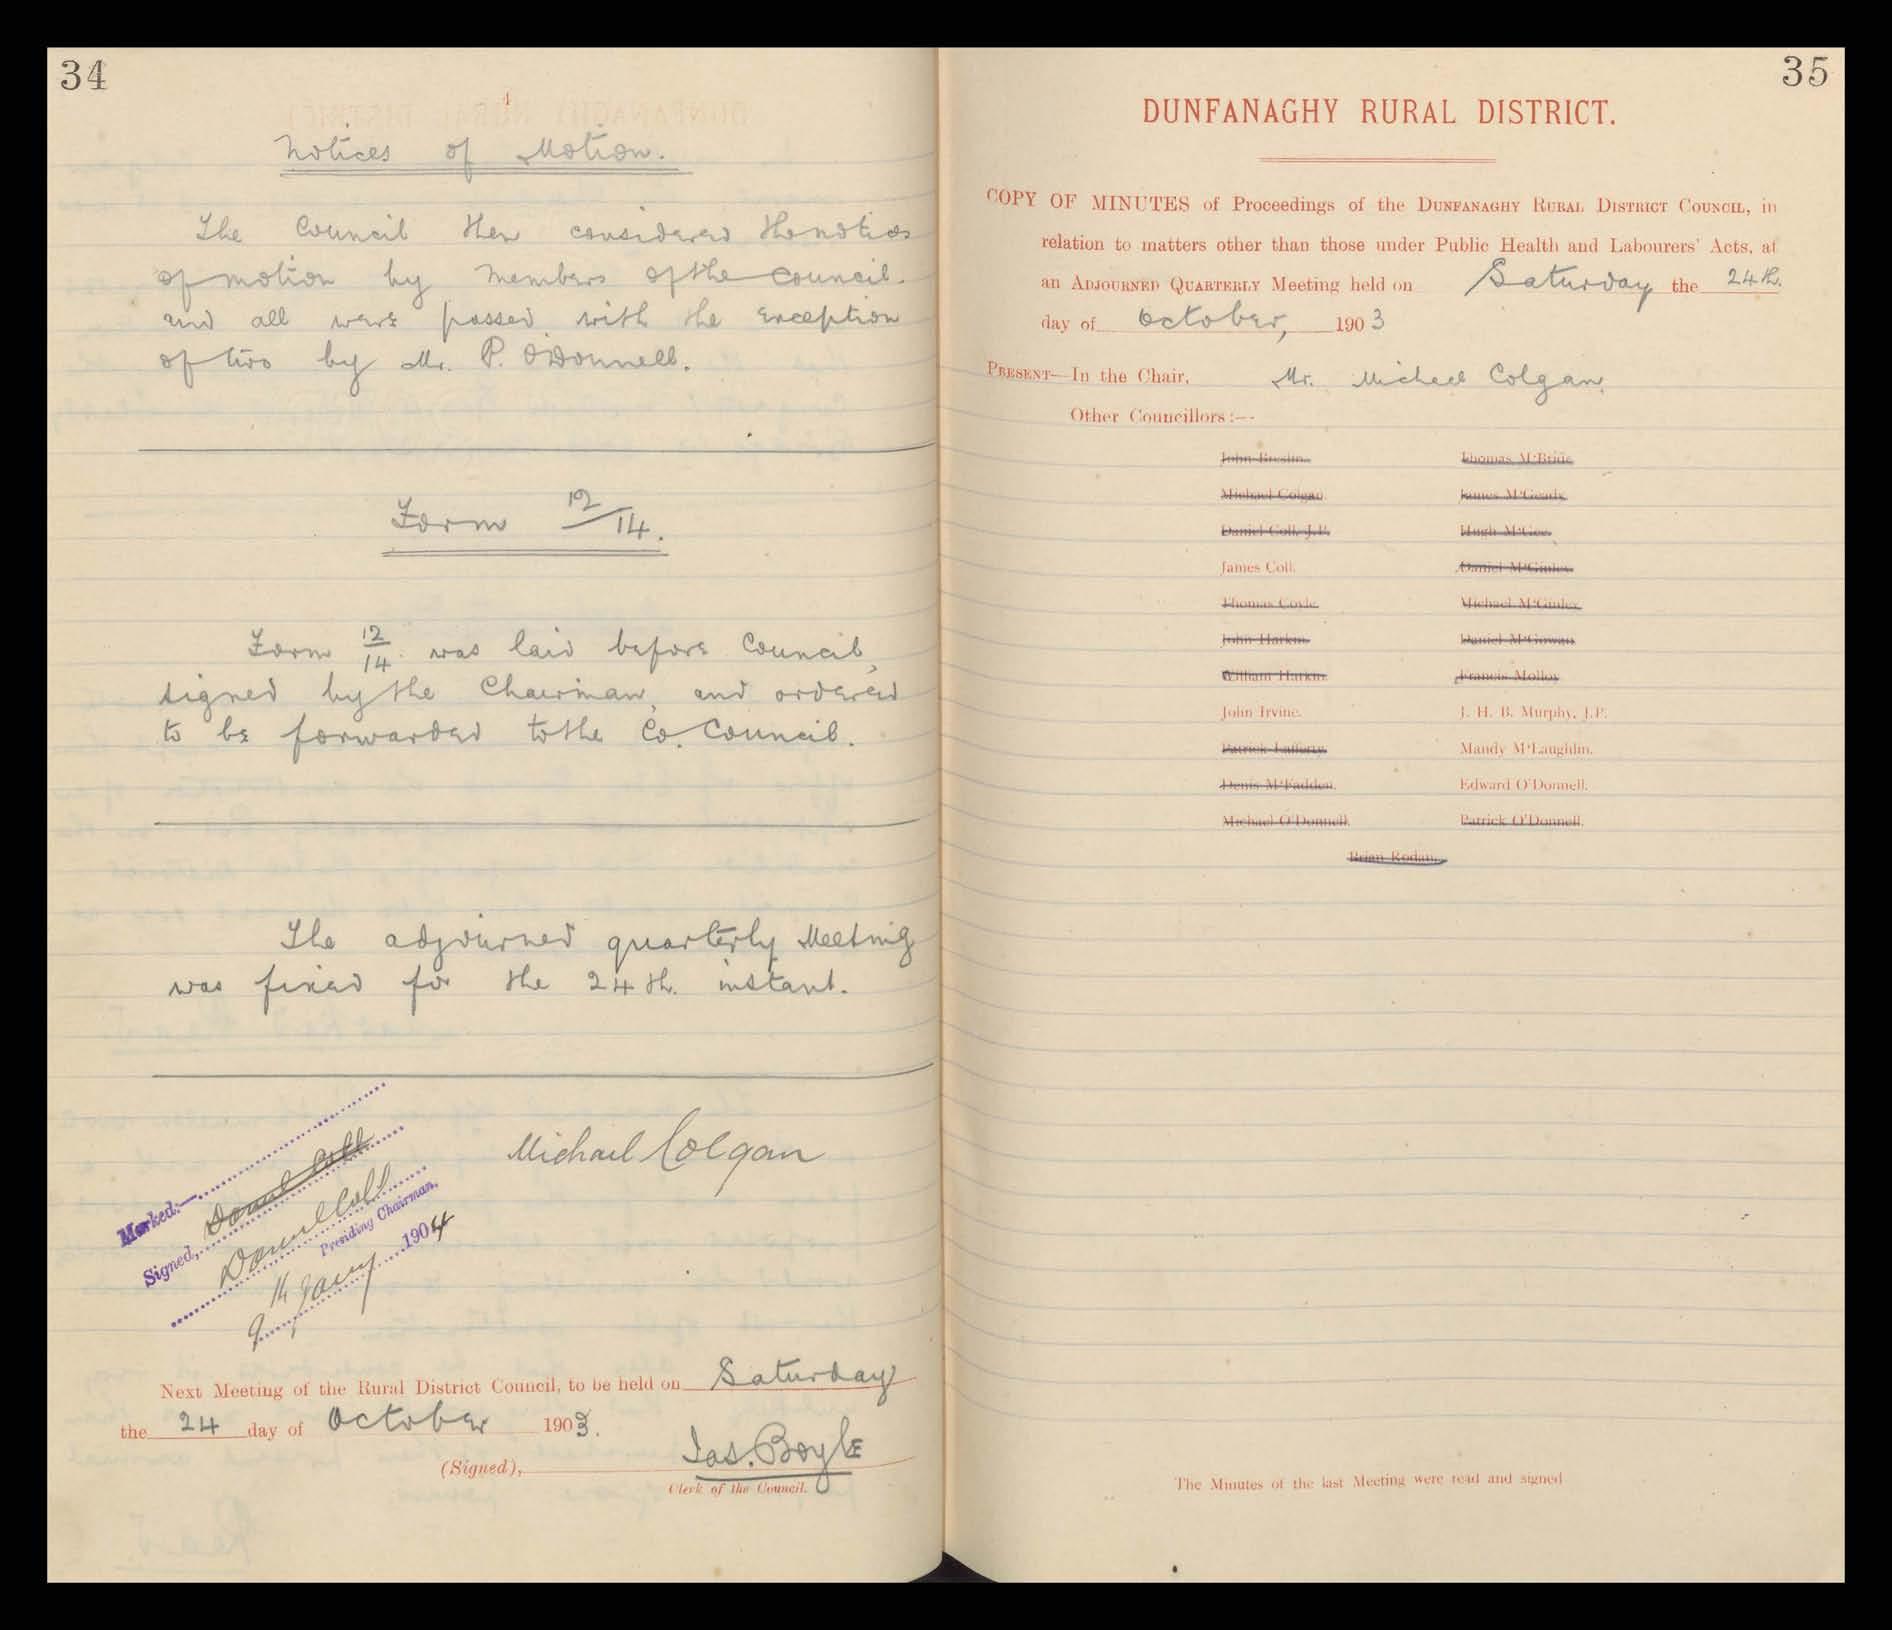 34
4
Notices of Motion.
The Council then considered the notices
of motion by members of the Council.
and all were passed with the exception
of two by Mr. P. O'Donnell.
Form 12/14.
Form 12/14 was laid before Council,
signed by the Chairman, and ordered
to be forwarded to the Co. Council.
The adjourned quarterly Meeting
was fixed for the 24th. instant.
Michael Colgan
Marked:—
Signed, Daniel Coll
Daniel Coll
Presiding Chairman.
9th Jany 1904
Next Meeting of the Rural District Council, to be held on Saturday
the 24 day of October 1903.
(Signed), Jas. Boyle
Clerk of the Council.
35
DUNFANAGHY RURAL DISTRICT.
COPY OF MINUTES of Proceedings of the DUNFANAGHY RURAL DISTRICT COUNCIL, in
relation to matters other than those under Public Health and Labourers' Acts, at
an ADJOURNED QUARTERLY Meeting held on Saturday the 24th.
day of October, 1903
PRESENT—In the Chair, Mr. Micheal Colgan.
Other Councillors:—
John Breslin. Thomas M'Bride
Michael Colgan. James M'Geady.
Daniel Coll, J.P. Hugh M'Gee.
James Coll. Daniel M'Ginley.
Thomas Coyle. Michael M'Ginley.
John Harkin. Daniel M'Gowan
William Harkin. Francis Molloy
John Irvine. J. H. B. Murphy, J.P.
Patrick Lafferty. Mandy M'Laughlin.
Denis M'Fadden. Edward O'Donnell.
Michael O'Donnell. Patrick O'Donnell.
Brian Rodan.
The Minutes of the last Meeting were read and signed